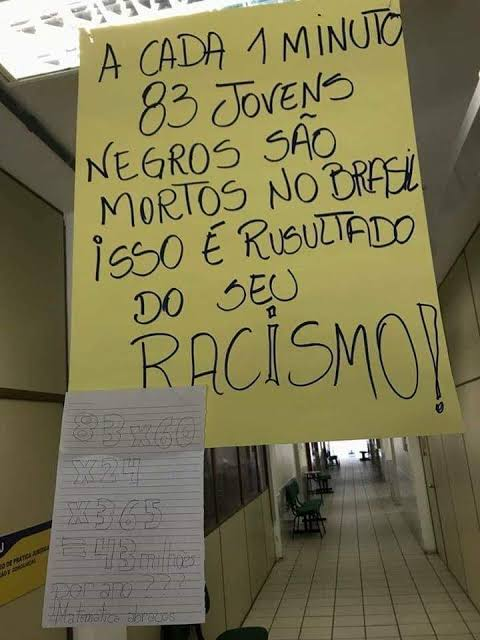 A CADA 1 MINUTO
83 JOVENS
NEGROS SÃO
MORTOS NO BRASIL
ISSO É RUSULTADO
DO SEU
RACISMO!
83x60
x24
x365
= 43 milhões
por ano ???
#Matemática abraços
J
O DE PRÁTICA JURÍDICA